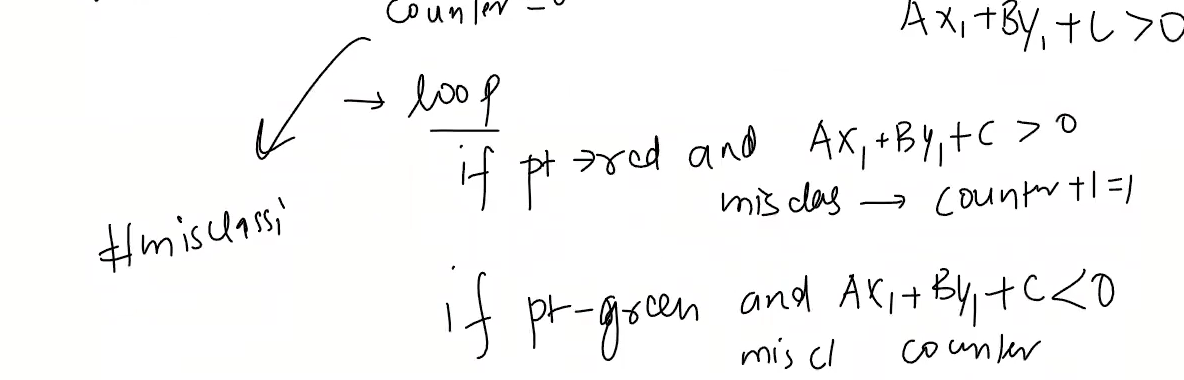 counter = 0
Ax₁+By₁+C>0
→ loop
if pt →red and Ax₁+By₁+C > 0
misclas → counter +1=1
#misclassi
if pt-green and Ax₁+By₁+C<0
miscl counter